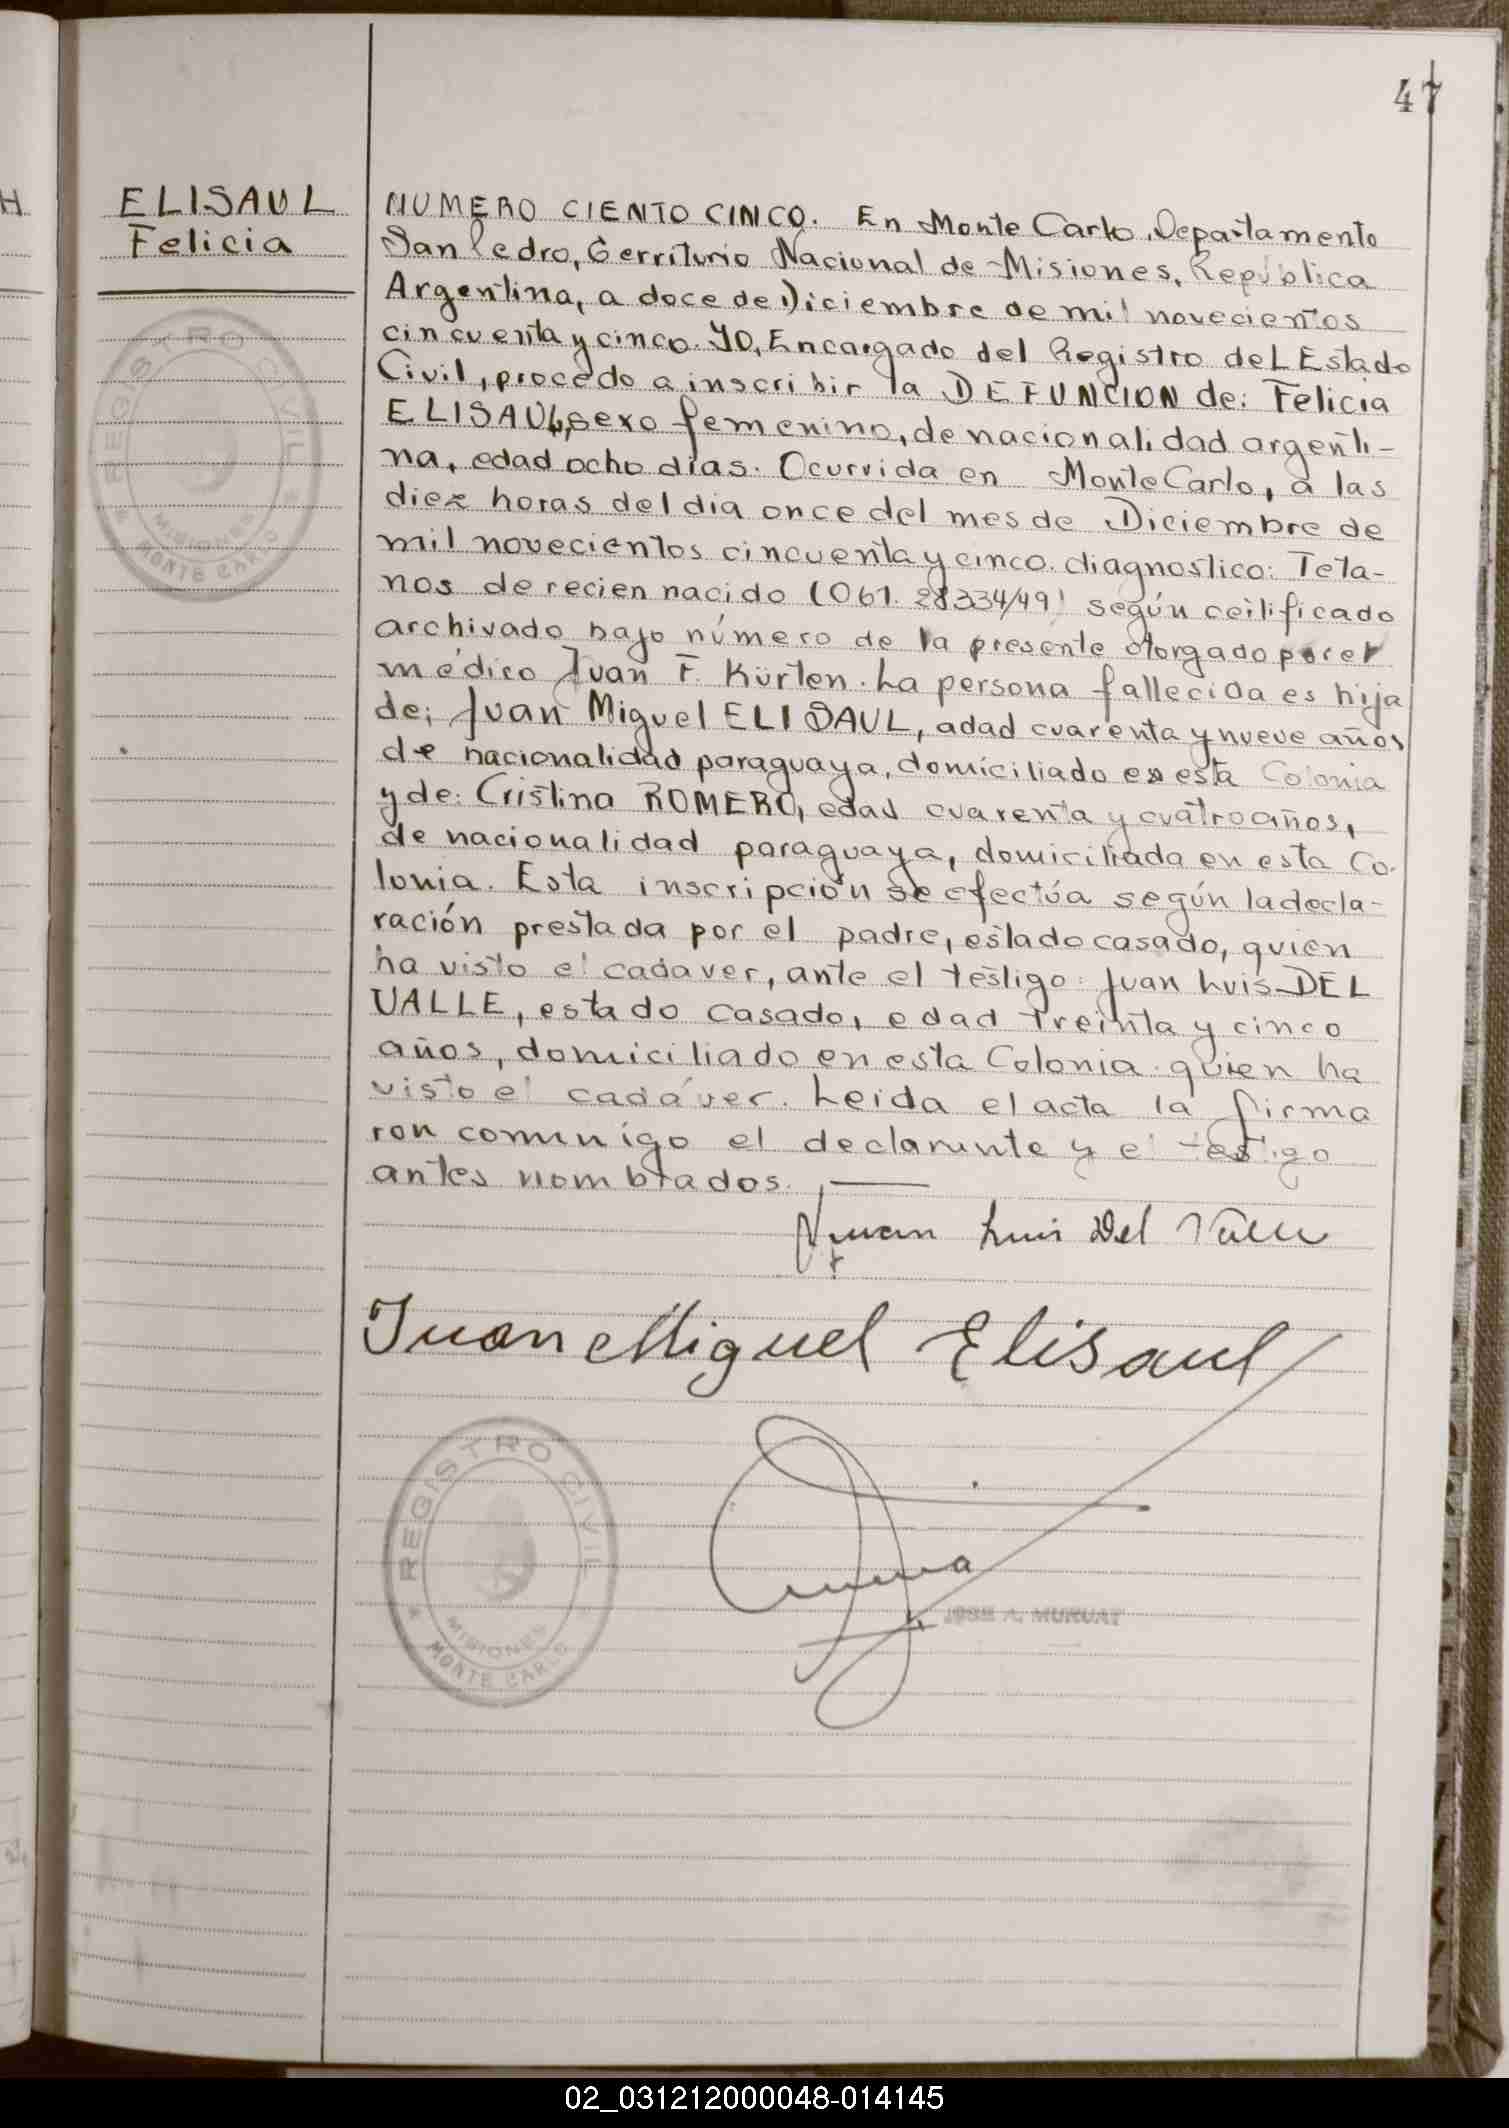 47
ELISAUL
Felicia
NUMERO CIENTO CINCO. En Monte Carlo, Departamento
San Pedro, Territorio Nacional de Misiones, República
Argentina, a doce de Diciembre de mil novecientos
cincuenta y cinco. YO, Encargado del Registro del Estado
Civil, procedo a inscribir la DEFUNCION de: Felicia
ELISAUL, sexo femenino, de nacionalidad argenti-
na, edad ocho días. Ocurrida en Monte Carlo, a las
diez horas del dia once del mes de Diciembre de
mil novecientos cincuenta y cinco. diagnostico: Teta-
nos de recien nacido (061. 28334/49) según ceilificado
archivado bajo número de la presente otorgado por el
médico Juan F. Kürten. La persona fallecida es hija
de: Juan Miguel ELISAUL, adad cuarenta y nueve años
de nacionalidad paraguaya, domiciliado en esta Colonia
y de: Cristina ROMERO, edad cuarenta y cuatro años,
de nacionalidad paraguaya, domiciliada en esta Co.
lonia. Esta inscripción se efectúa según la decla-
ración prestada por el padre, estado casado, quien
ha visto el cadaver, ante el testigo: Juan Luis DEL
VALLE, estado casado, edad treinta y cinco
años, domiciliado en esta Colonia. quien ha
visto el cadáver. Leida el acta la firma
ron comunigo el declarante y el testigo
antes nombrados.
Juan Luis Del Valle
Juan Miguel Elisaul
REGISTRO CIVIL
MISIONES
MONTE CARLO
REGISTRO CIVIL
MISIONES
MONTE CARLO
JOSE A. MURUAT
02_031212000048-014145